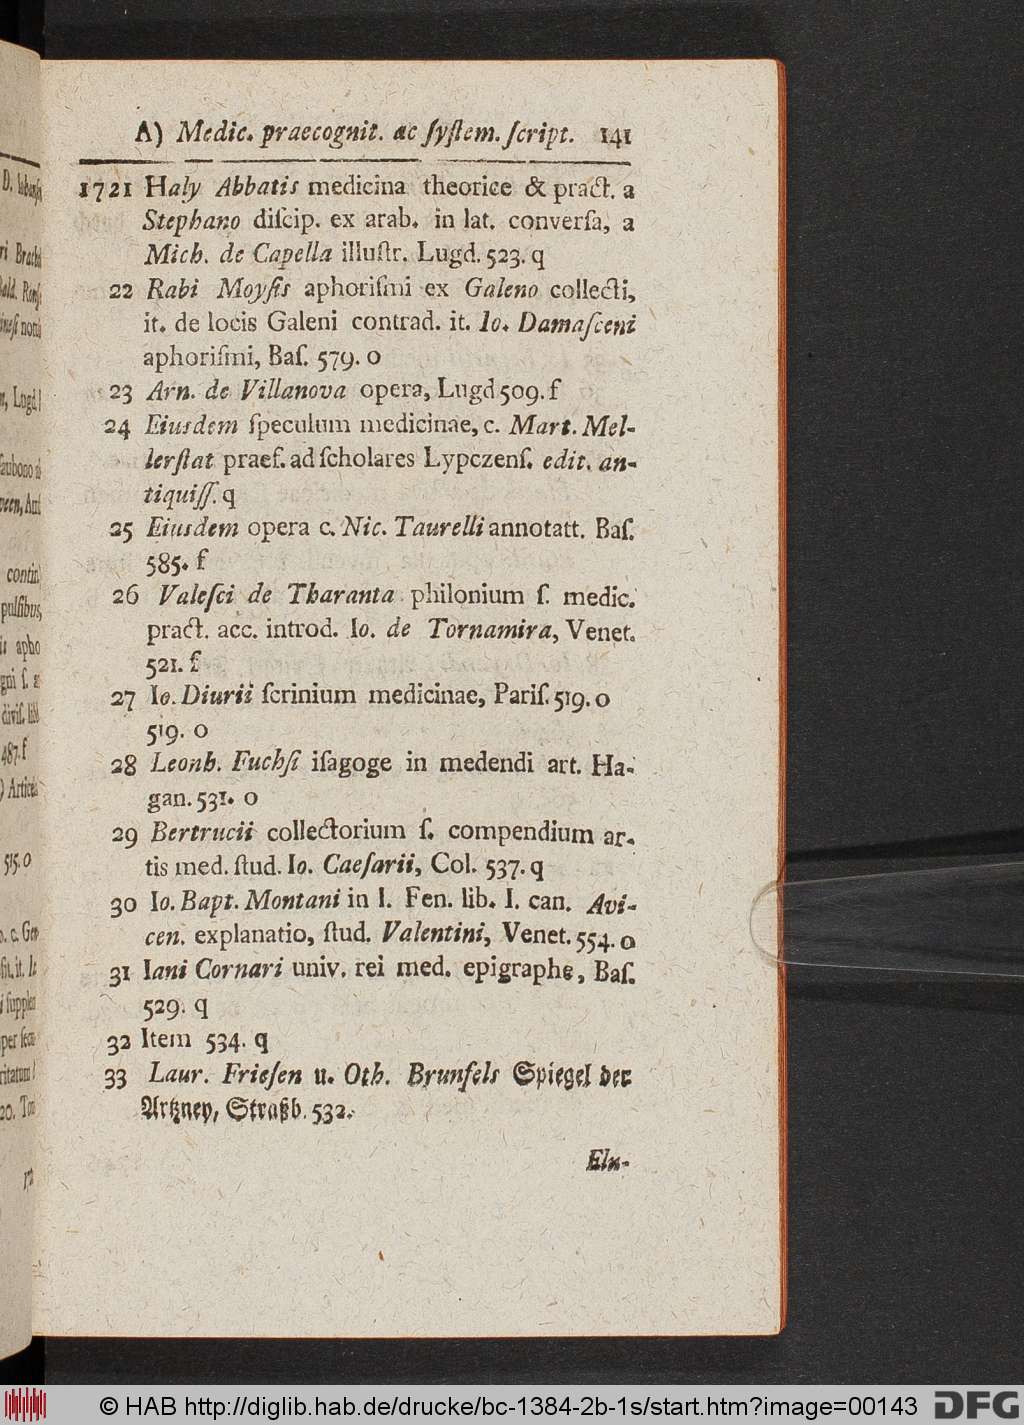 A) Medic. praecognit. ac ſyſtem. ſcript. 141
1721 Haly Abbatis medicina theorice & pract. a
Stephano diſcip. ex arab. in lat. converſa, a
Mich. de Capella illuſtr. Lugd. 523. q
22 Rabi Moyſis aphoriſmi ex Galeno collecti,
it. de locis Galeni contrad. it. Io. Damaſceni
aphoriſmi, Baſ. 579. o
23 Arn. de Villanova opera, Lugd 509. f
24 Eiusdem ſpeculum medicinae, c. Mart. Mel-
lerſtat praef. ad ſcholares Lypczenſ. edit. an-
tiquiſſ. q
25 Eiusdem opera c. Nic. Taurelli annotatt. Baſ.
585. f
26 Valeſci de Tharanta philonium ſ. medic.
pract. acc. introd. Io. de Tornamira, Venet.
521. f
27 Io. Diurii ſcrinium medicinae, Pariſ. 519. o
519. o
28 Leonh. Fuchſi iſagoge in medendi art. Ha-
gan. 531. o
29 Bertrucii collectorium ſ. compendium ar-
tis med. ſtud. Io. Caeſarii, Col. 537. q
30 Io. Bapt. Montani in I. Fen. lib. I. can. Avi-
cen. explanatio, ſtud. Valentini, Venet. 554. o
31 Iani Cornari univ. rei med. epigraphe, Baſ.
529. q
32 Item 534. q
33 Laur. Frieſen u. Oth. Brunfels Spiegel der
Artzney, Straßb. 532.
Elu-
© HAB http://diglib.hab.de/drucke/bc-1384-2b-1s/start.htm?image=00143
DFG